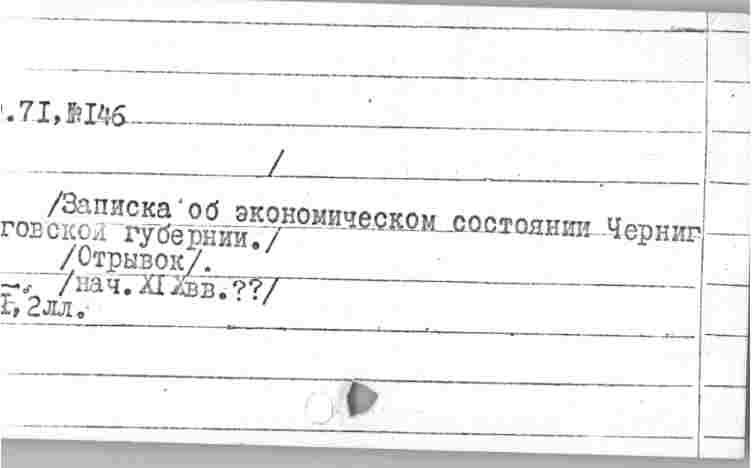 .7I,№I46
/
/Записка об экономическом состоянии Черниг
говской губернии./
/Отрывок/.
/нач.XIXвв.??/
I, 2лл.